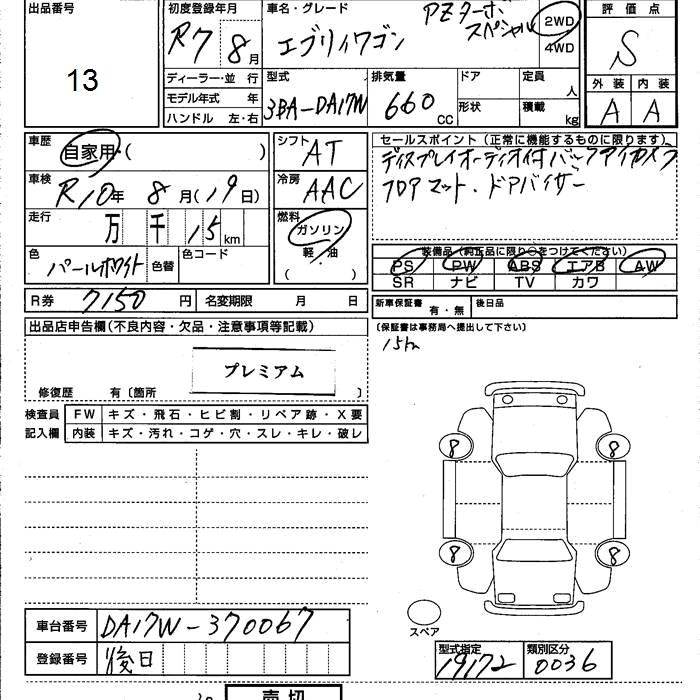 出品番号
13
初度登録年月
R7 8月
車名・グレード
PZターボ
スペシャル
エブリィワゴン
2WD
4WD
評価点
S
外装 内装
A A
ディーラー・並 行
モデル年式 年
ハンドル 左・右
型式
3BA-DA17W
排気量
660 CC
ドア
形状
定員
人
積載
kg
車歴
自家用・( )
シフト
AT
車検
R10年 8月(19日)
冷房
AAC
走行
万 千 15 km
燃料
ガソリン
軽・油
( )
色
パールホワイト
色替
色コード
セールスポイント(正常に機能するものに限ります)
ディスプレイオーディオ付バックアイカメラ
フロアマット・ドアバイザー
装備品(純正品に限り○をつけてください)
PS PW ABS エアB AW
SR ナビ TV カワ
R券 7150 円 名変期限 月 日
新車保証書 有・無 後日品
(保証書は事務局へ提出して下さい)
15km
出品店申告欄(不良内容・欠品・注意事項等記載)
プレミアム
修復歴 有〔箇所 〕
検査員 FW キズ・飛石・ヒビ割・リペア跡・X要
記入欄 内装 キズ・汚れ・コゲ・穴・スレ・キレ・破レ
8 8
8 8
スペア
車台番号 DA17W-370067
登録番号 後日
型式指定 19172
類別区分 0036
売切